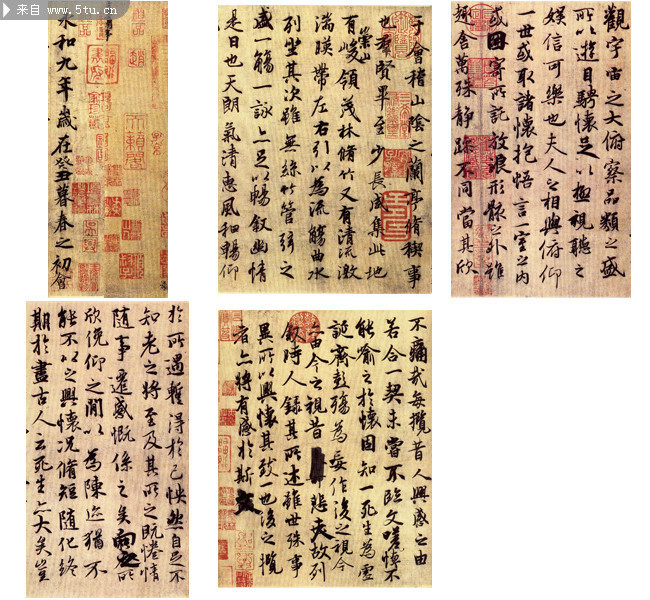 来自: www.5tu.cn
永和九年歲在癸丑暮春之初會
于會稽山陰之蘭亭脩稧事
也羣賢畢至少長咸集此地
有崇山峻領茂林脩竹又有清流激
湍暎帶左右引以為流觴曲水
列坐其次雖無絲竹管弦之
盛一觴一詠亦足以暢敘幽情
是日也天朗氣清惠風和暢仰
觀宇宙之大俯察品類之盛
所以遊目騁懷足以極視聽之
娛信可樂也夫人之相與俯仰
一世或取諸懷抱悟言一室之內
或因寄所託放浪形骸之外雖
趣舍萬殊靜躁不同當其欣
於所遇暫得於己怏然自足不
知老之將至及其所之既惓情
隨事遷感慨係之矣向之所
欣俛仰之閒以為陳迹猶不
能不以之興懷況脩短隨化終
期於盡古人云死生亦大矣豈
不痛哉每攬昔人興感之由
若合一契未嘗不臨文嗟悼不
能喻之於懷固知一死生為虛
誕齊彭殤為妄作後之視今
亦由今之視昔悲夫故列
敘時人錄其所述雖世殊事
異所以興懷其致一也後之攬
者亦將有感於斯文